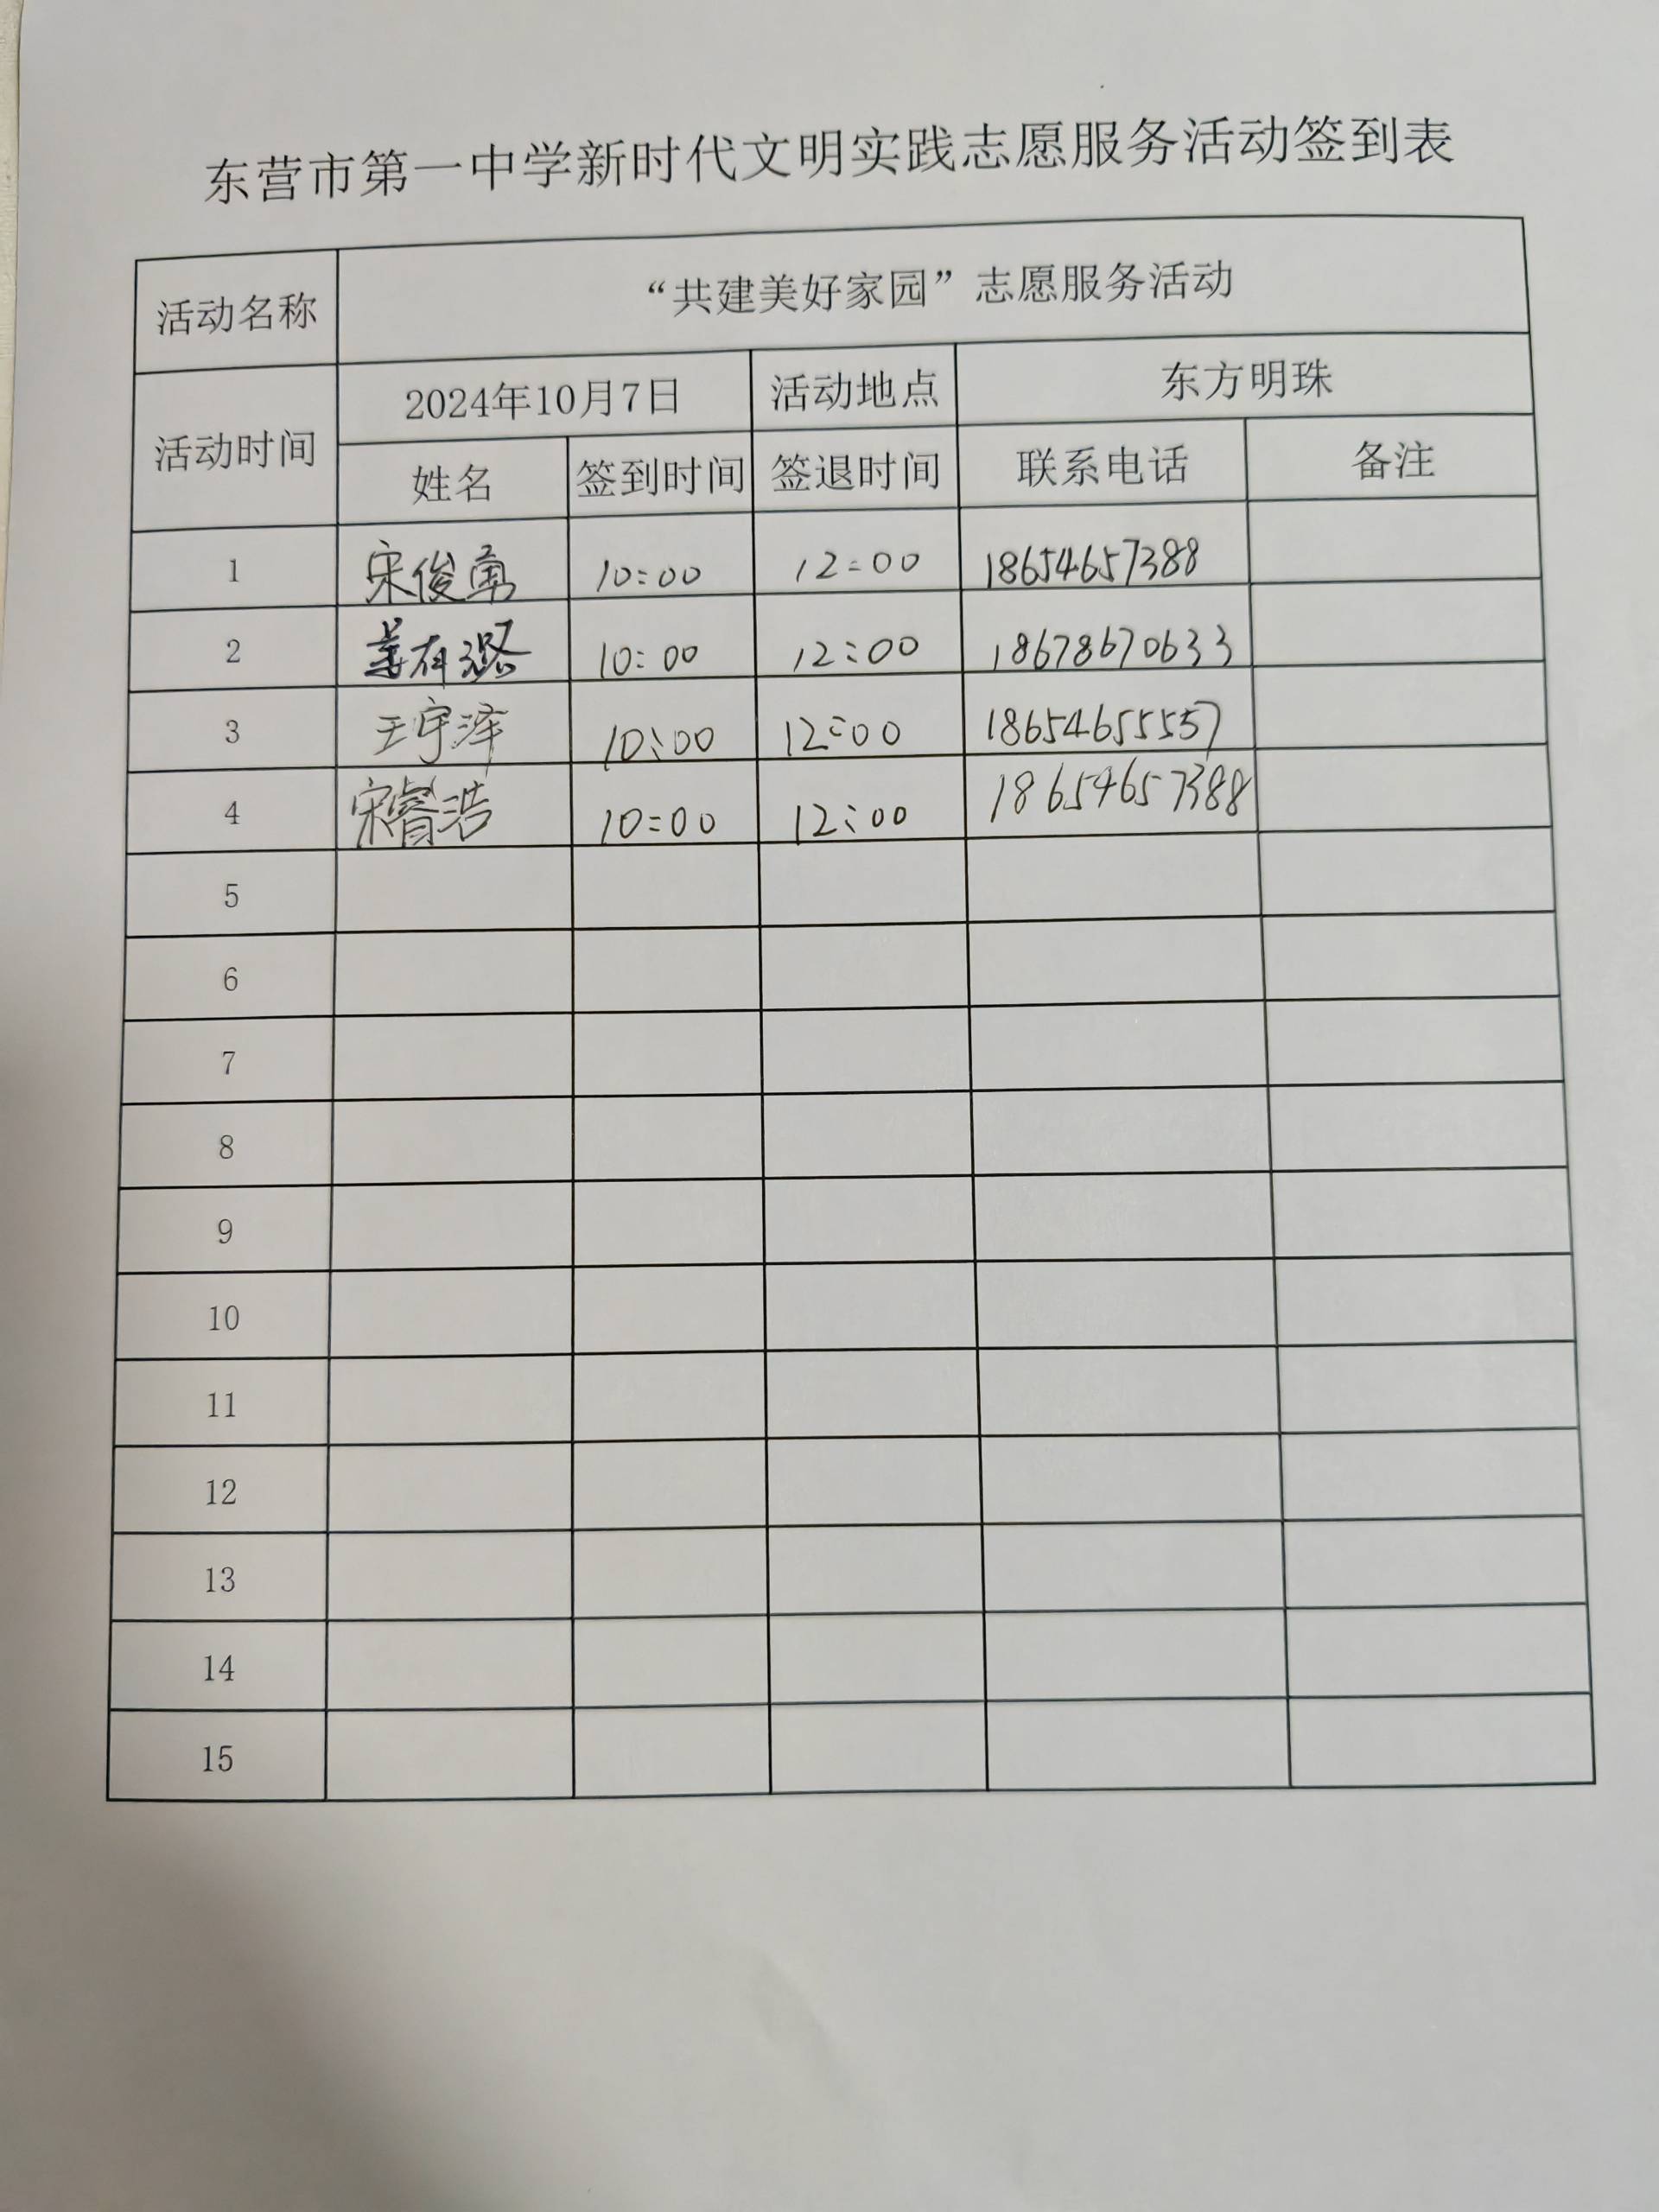 东营市第一中学新时代文明实践志愿服务活动签到表
活动名称 “共建美好家园”志愿服务活动
活动时间 2024年10月7日 活动地点 东方明珠
姓名 签到时间 签退时间 联系电话 备注
1 宋俊勇 10:00 12:00 18654657388
2 10:00 12:00 18678670633
3 王宇泽 10:00 12:00 18654655557
4 宋睿浩 10:00 12:00 18654657388
5
6
7
8
9
10
11
12
13
14
15